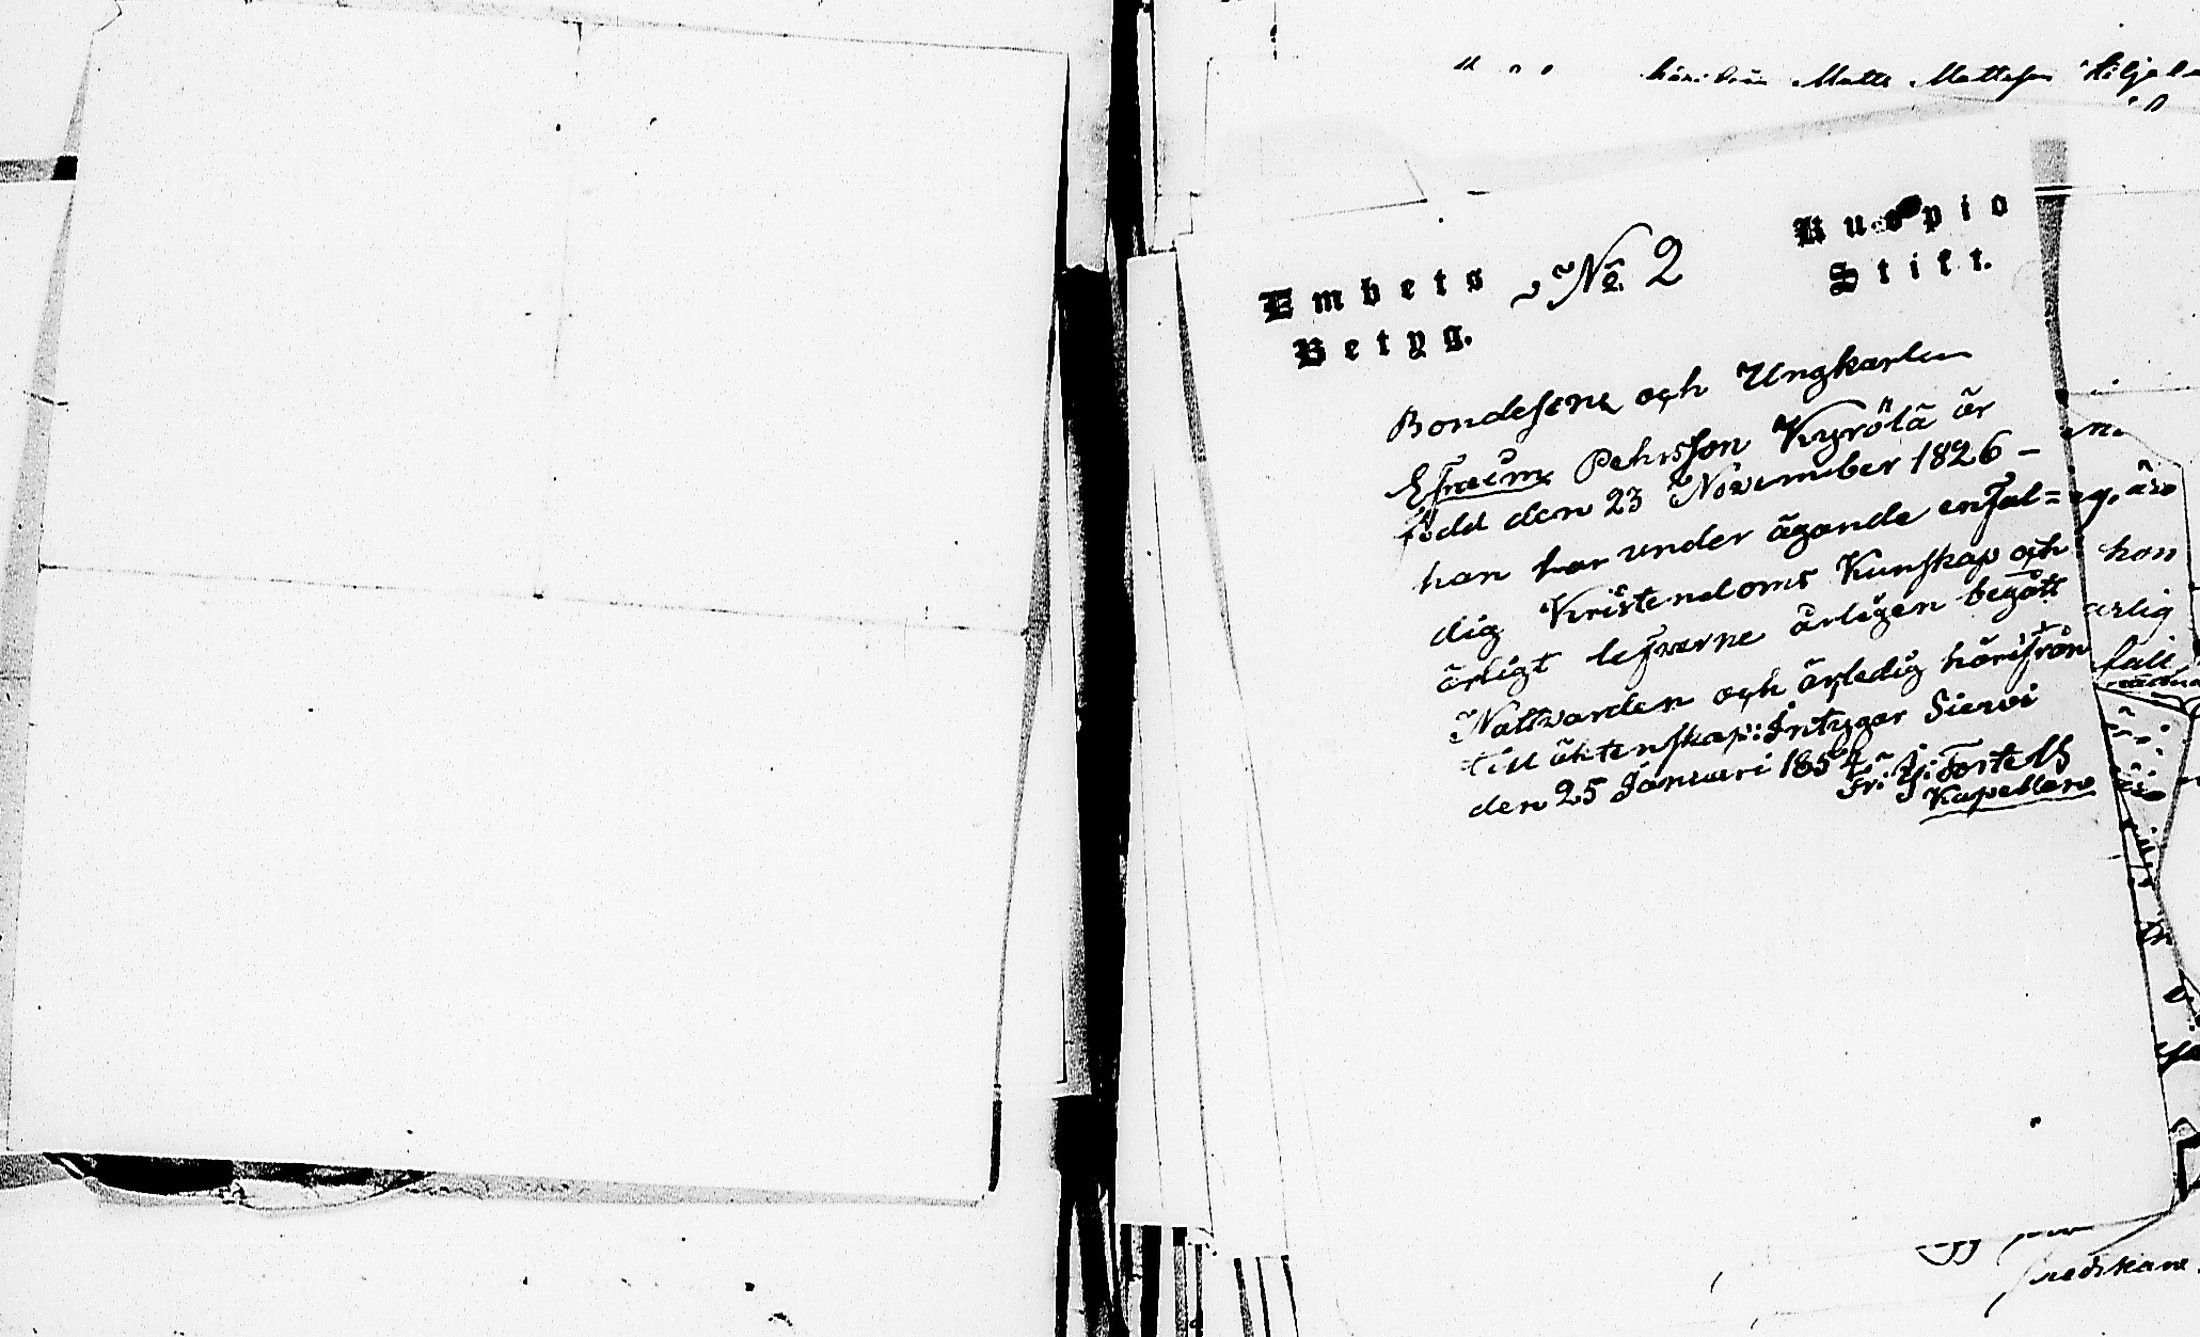 Matts Mattsson
Embets No 2 Kuopio
Betyg. Stift.
Bondesone och Ungkarlen
Efraim Pehrsson Kyrölä är
född den 23 November 1826 –
han har under ägande enfal=
dig Kristendoms Kunskap och
ärligt lefverne årligen begått
Nattvarden och är ledig härifrån
till äktenskap: Intygar Sievi
den 25 Januari 1854
Fr. J. Forstell
Kapellan
han
arlig
fall